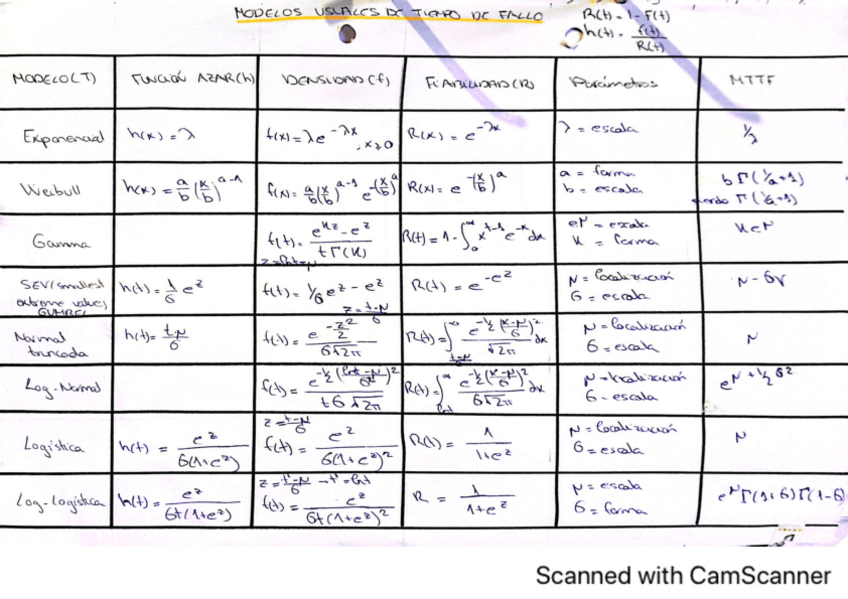 MODELOS USUALES DE TIEMPO DE FALLO
R(t) = 1 - F(t)
h(t) = f(t)/R(t)
MODELO (T) FUNCIÓN AZAR (h) DENSIDAD (f) FIABILIDAD (R) Parámetros MTTF
Exponencial h(x) = λ f(x) = λe^{-λx}, x≥0 R(x) = e^{-λx} λ = escala 1/λ
Weibull h(x) = a/b (x/b)^{a-1} f(x) = a/b (x/b)^{a-1} e^{-(x/b)^a} R(x) = e^{-(x/b)^a} a = forma b = escala b Γ(1/a+1) Γ(1/a+1)
Gamma f(t) = e^{κz - e^z} / tΓ(κ) R(t) = 1 - ∫ x^{κ-1} e^{-x} dx e^μ = escala κ = forma κe^μ
z = lnt-μ
SEV (smallest extreme value) GUMBEL h(t) = 1/σ e^z f(t) = 1/σ e^{z - e^z} R(t) = e^{-e^z} μ = localización σ = escala μ - σγ
z = t-μ/σ
Normal truncada h(t) = t-μ/σ f(t) = e^{-z²/2} / σ√2π R(t) = ∫ e^{-1/2 (x-μ/σ)²} / √2π dx μ = localización σ = escala μ
Log-Normal f(t) = e^{-1/2 (lnt-μ/σ)²} / tσ√2π R(t) = ∫ e^{-1/2 (x-μ/σ)²} / σ√2π dx μ = localización σ = escala e^{μ + 1/2 σ²}
z = t-μ/σ
Logística h(t) = e^z / σ(1+e^z) f(t) = e^z / σ(1+e^z)² R(t) = 1 / 1+e^z μ = localización σ = escala μ
z = t'-μ/σ → t' = lnt
Log-logística h(t) = e^z / σt(1+e^z) f(t) = e^z / σt(1+e^z)² R = 1 / 1+e^z μ = escala σ = forma e^μ Γ(1+σ) Γ(1-σ)
Scanned with CamScanner